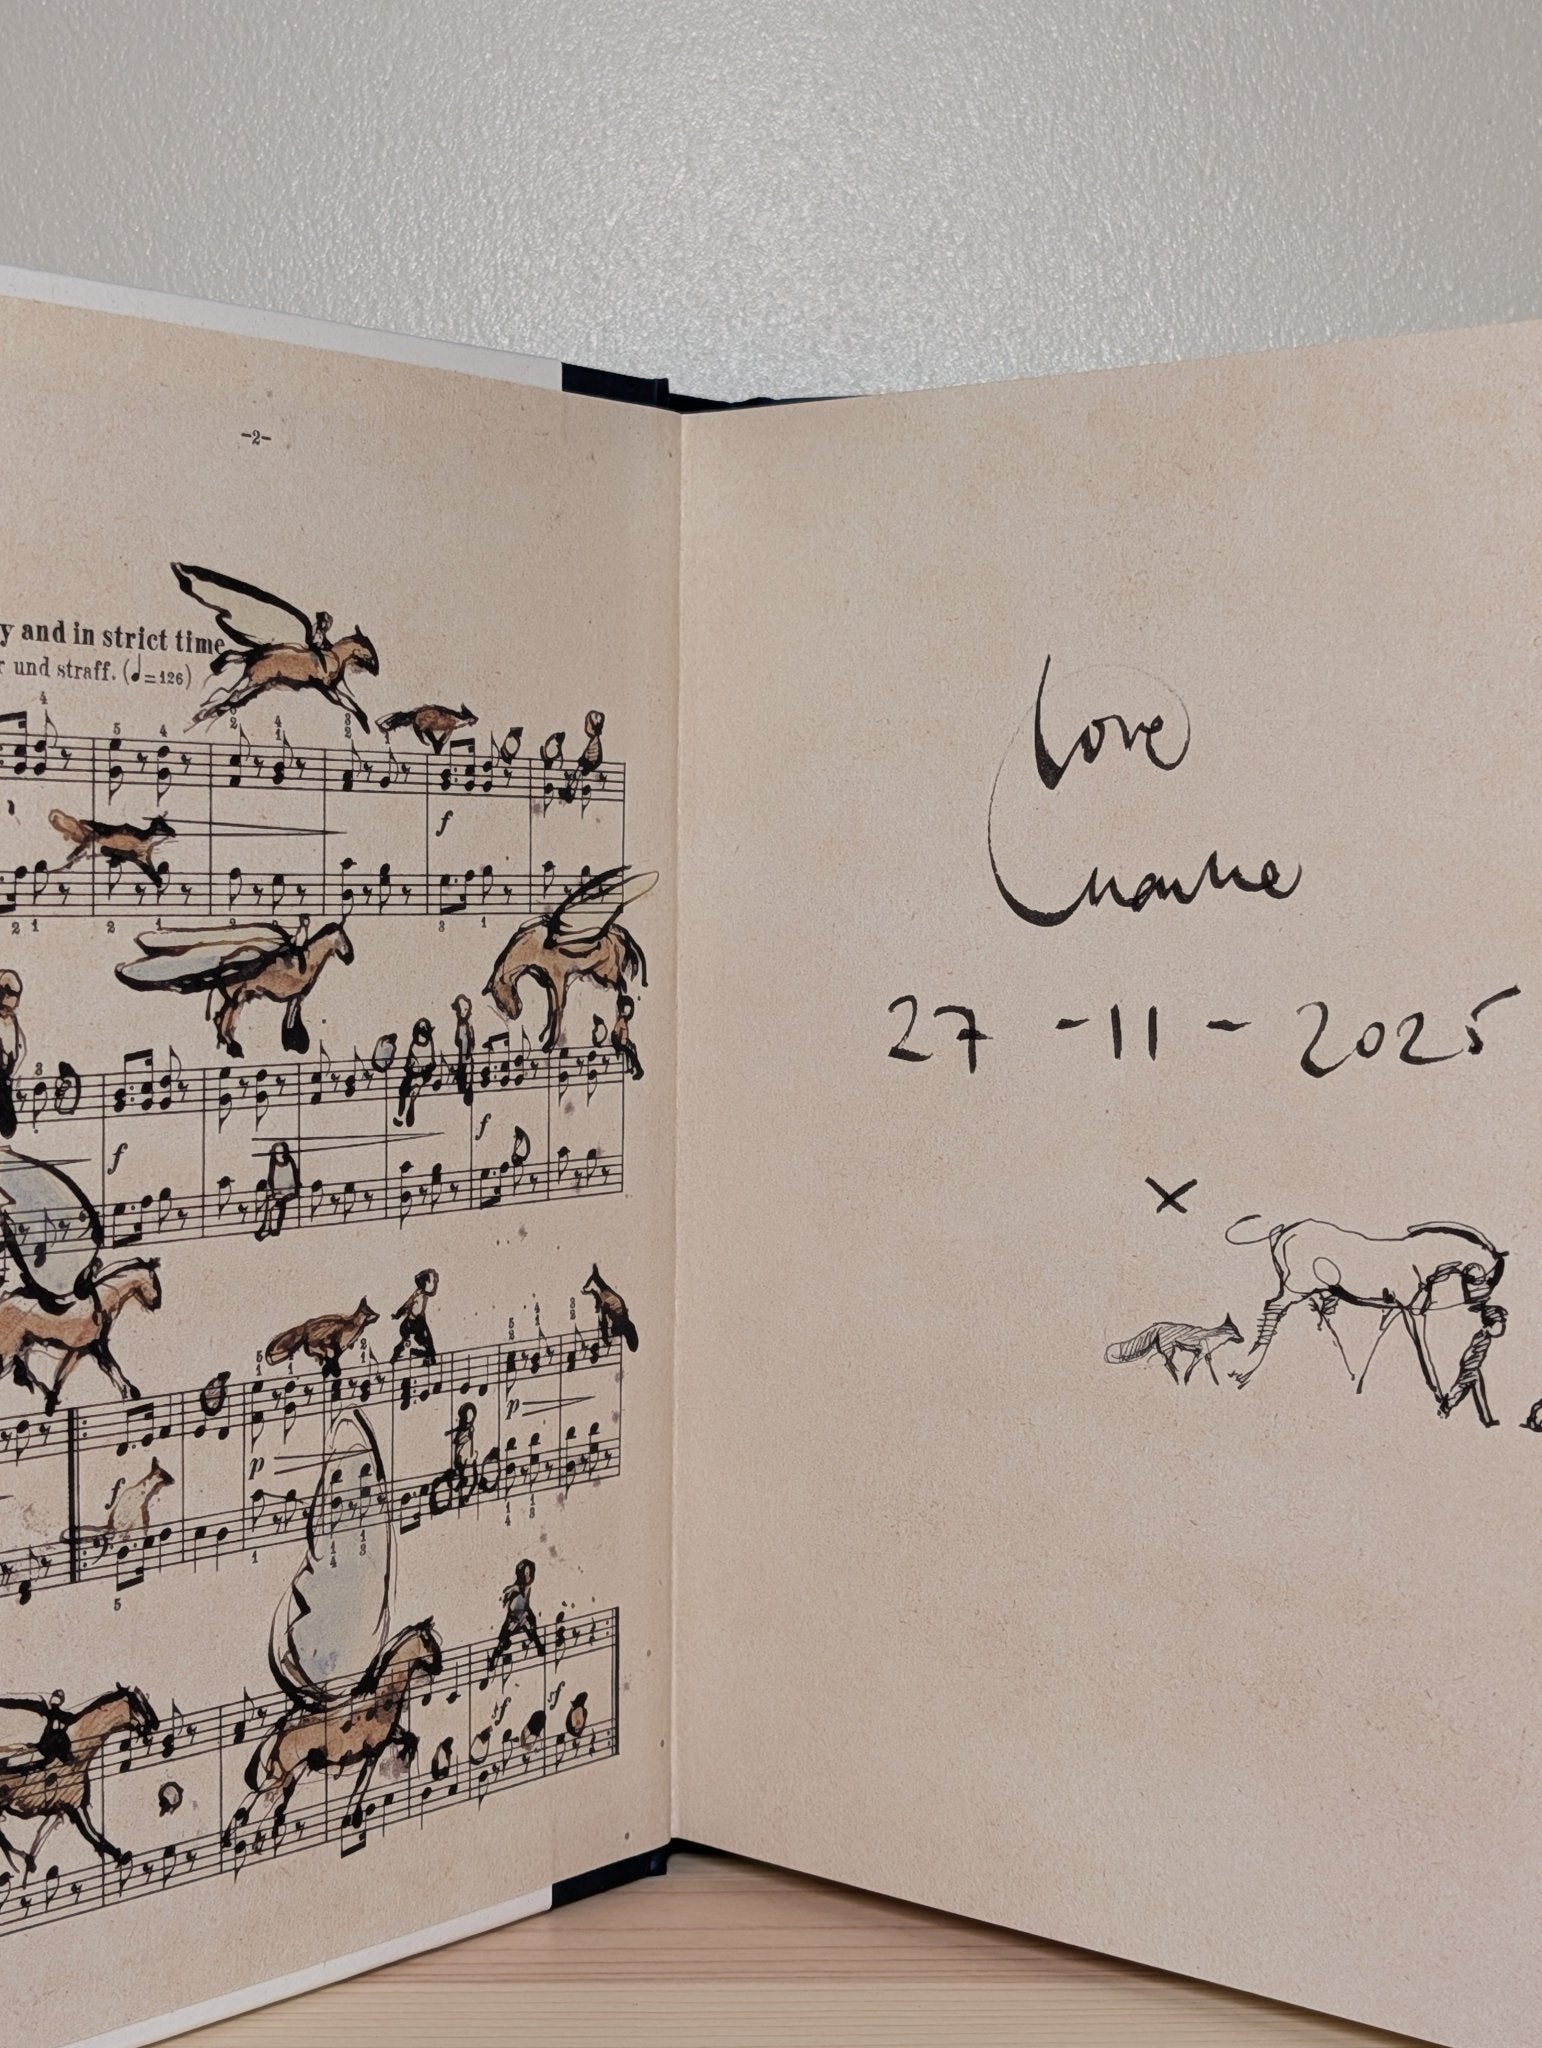 -2-
y and in strict time
r und straff. (♩=126)
f
f
f
f
p
p
sf
sf
Love
Charlie
27 - 11 - 2025
x